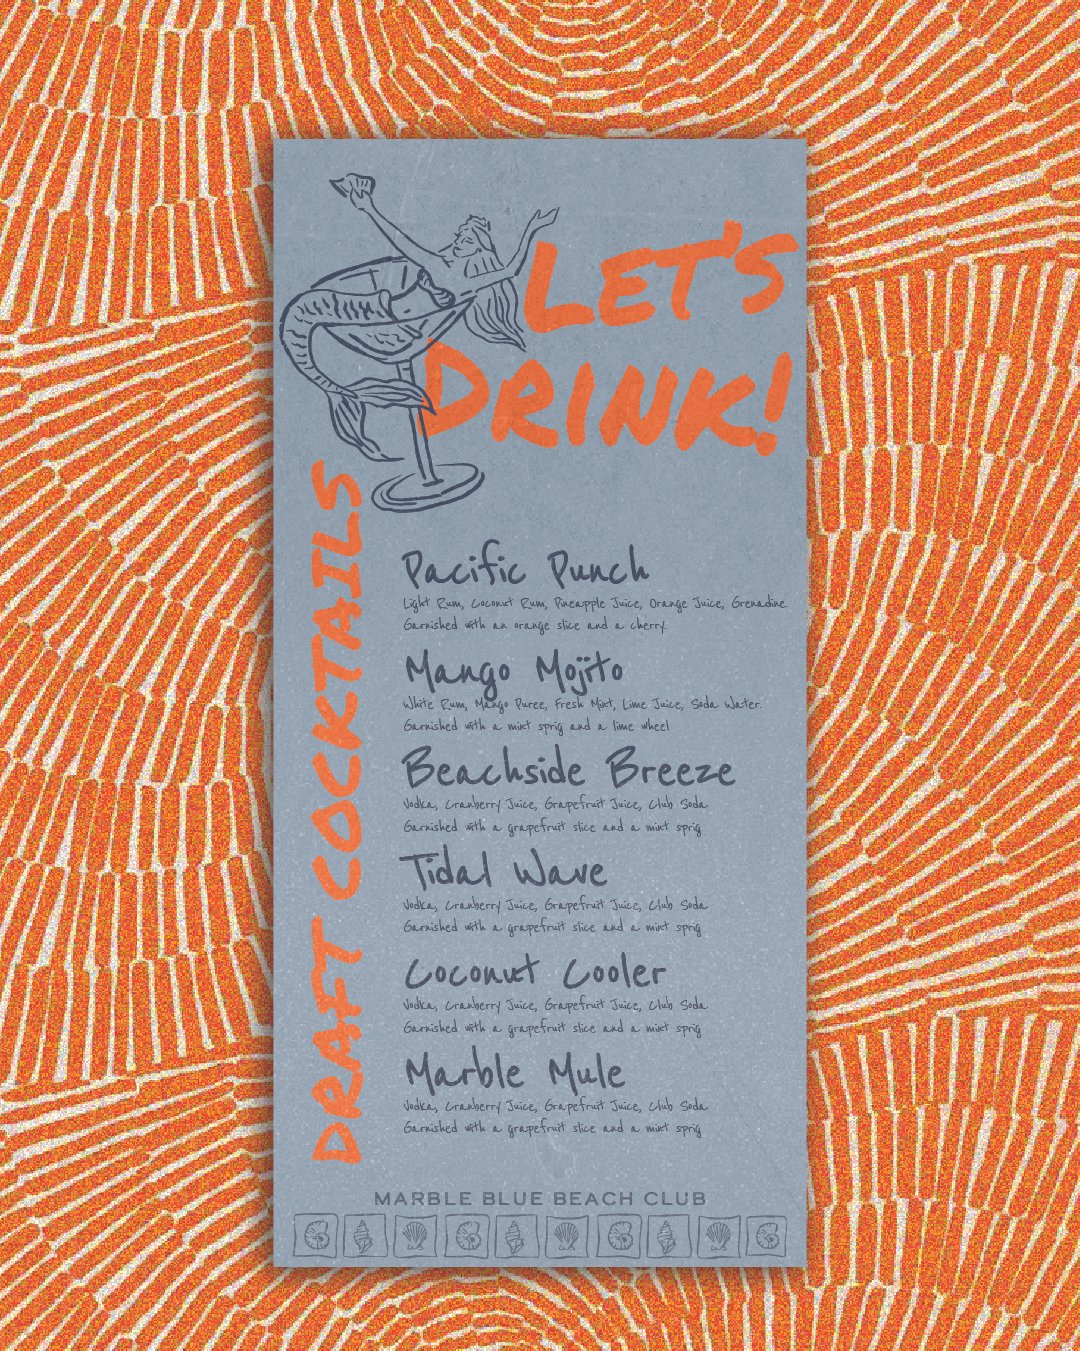 LET'S
DRINK!
DRAFT COCKTAILS
Pacific Punch
Light Rum, Coconut Rum, Pineapple Juice, Orange Juice, Grenadine.
Garnished with an orange slice and a cherry.
Mango Mojito
White Rum, Mango Puree, Fresh Mint, Lime Juice, Soda Water.
Garnished with a mint sprig and a lime wheel
Beachside Breeze
Vodka, Cranberry Juice, Grapefruit Juice, Club Soda
Garnished with a grapefruit slice and a mint sprig
Tidal Wave
Vodka, Cranberry Juice, Grapefruit Juice, Club Soda
Garnished with a grapefruit slice and a mint sprig
Coconut Cooler
Vodka, Cranberry Juice, Grapefruit Juice, Club Soda
Garnished with a grapefruit slice and a mint sprig
Marble Mule
Vodka, Cranberry Juice, Grapefruit Juice, Club Soda
Garnished with a grapefruit slice and a mint sprig
MARBLE BLUE BEACH CLUB